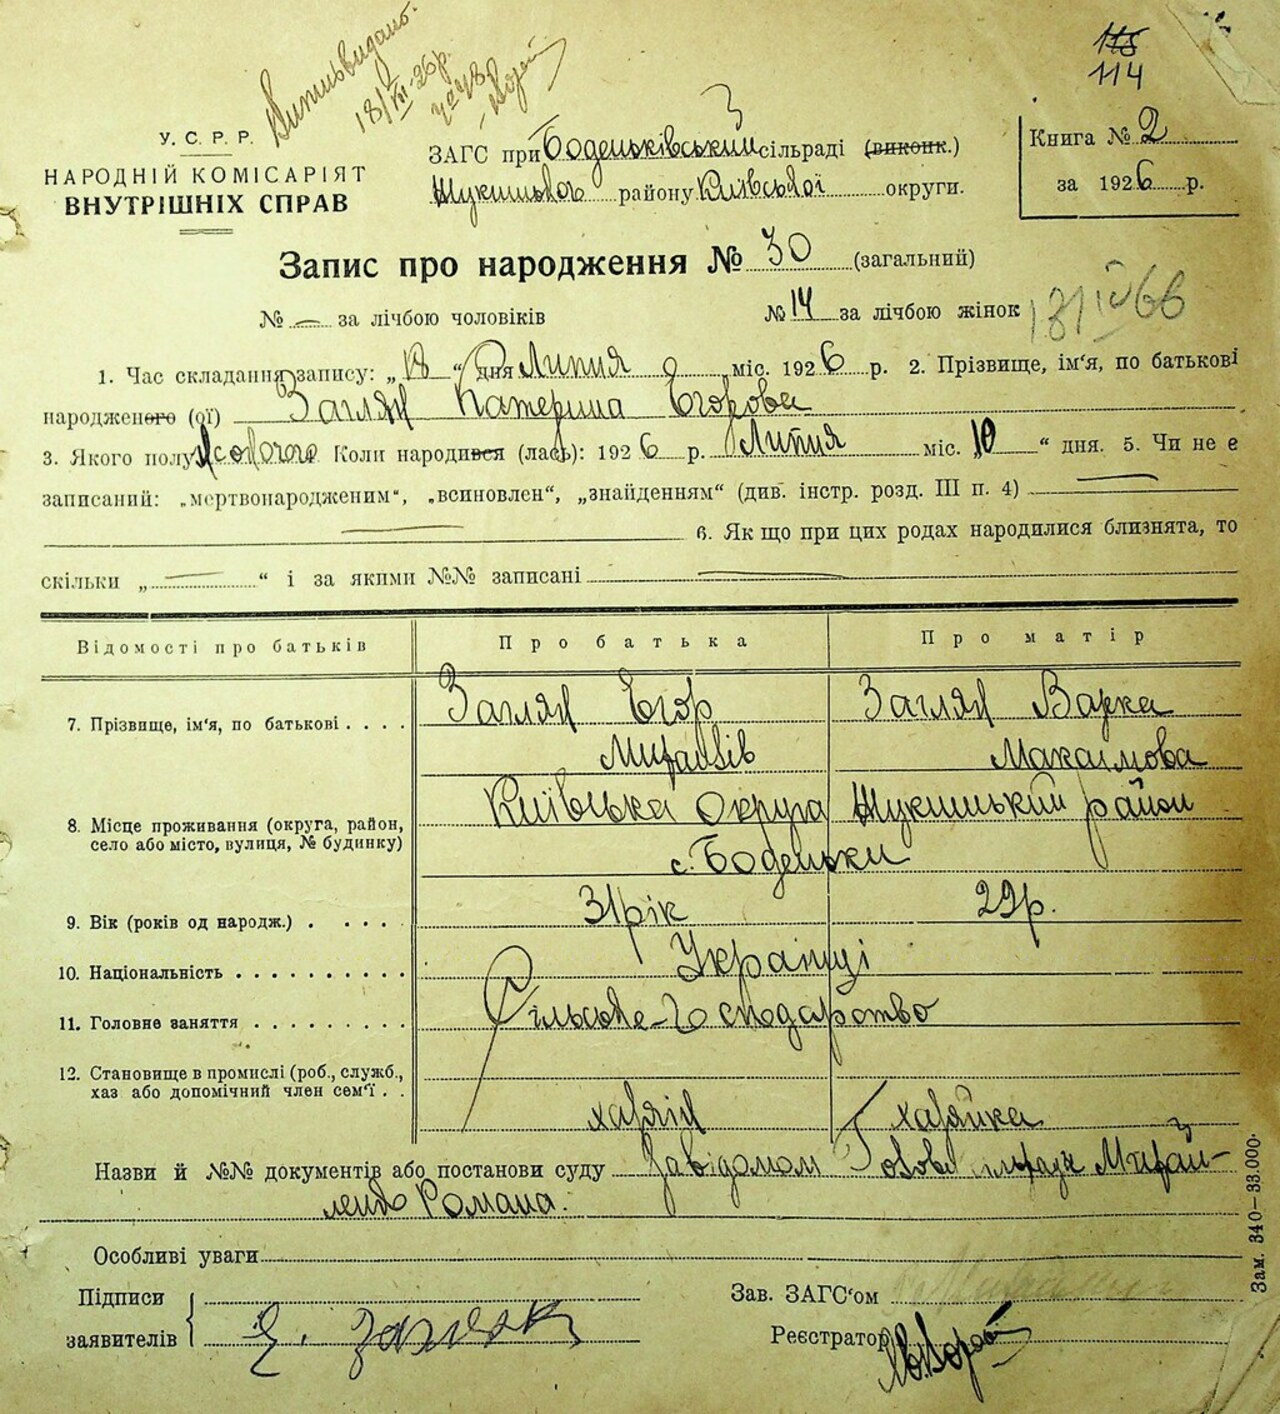 Витяг видано.
18/VII-26р.
115
114
У. С. Р. Р.
НАРОДНІЙ КОМІСАРІЯТ
ВНУТРІШНІХ СПРАВ
ЗАГС при Боденьківський сільраді (виконк.)
Жукинського району Київської округи.
Книга № 2
за 1926 р.
Запис про народження № 30 (загальний)
№ — за лічбою чоловіків № 14 за лічбою жінок
1. Час складання запису: „18“ дня Липня міс. 1926 р. 2. Прізвище, ім'я, по батькові
народженого (ої) Загляй Катерина Єгорова
3. Якого полу Коли народився (лась): 1926 р. Липня міс. „10“ дня. 5. Чи не є
записаний: „мертвонародженим“, „всиновлен“, „знайденням“ (див. інстр. розд. III п. 4) —
— 6. Як що при цих родах народилися близнята, то
скільки „—“ і за якими №№ записані —
Відомості про батьків Про батька Про матір
7. Прізвище, ім'я, по батькові . . . . Загляй Єгор Загляй Варка
Максимова
Київська округа Жукинський район
8. Місце проживання (округа, район,
село або місто, вулиця, № будинку)
с. Боденьки
9. Вік (років од народж.) . . . . . 31 рік 29 р.
10. Національність . . . . . . . . . . Українці
11. Головне заняття . . . . . . . . . Сільське-Господарство
12. Становище в промислі (роб., служб.,
хаз або допомічний член сем'ї . .
хазяїн хазяйка
Назви й №№ документів або постанови суду За відомом Голови сільради Михай-
ленко Романа.
Особливі уваги
Підписи
заявителів
Зав. ЗАГС'ом
Реєстратор
Зам. 340—33.000.